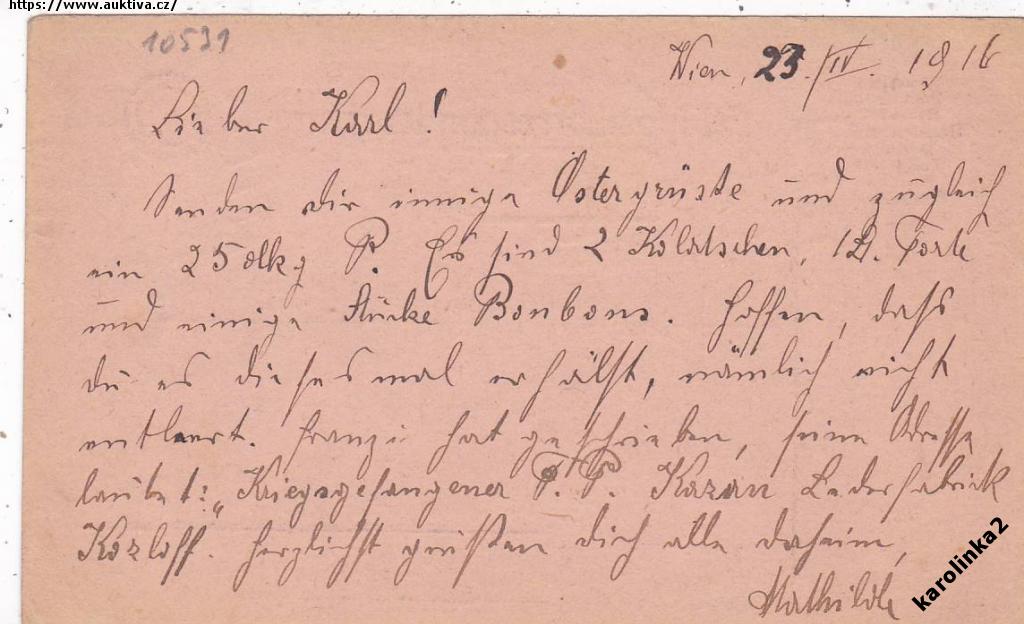 https://www.auktiva.cz/
10531
Wien, 23./IV. 1916
Lieber Karl!
Senden dir innige Ostergrüsse und zugleich
ein 25 dkg P. Es sind 2 Kolatschen, 1 Torte
und einige Stücke Bonbons. Hoffen, dass
du es diesesmal erhälst, nämlich nicht
entleert. Franzi hat geschrieben, seine Adresse
lautet: „Kriegsgefangener F. P. Kazan Lederfabrick
Kozloff. Herzlichst grüßen dich alle daheim,
Mathilde
karolinka2